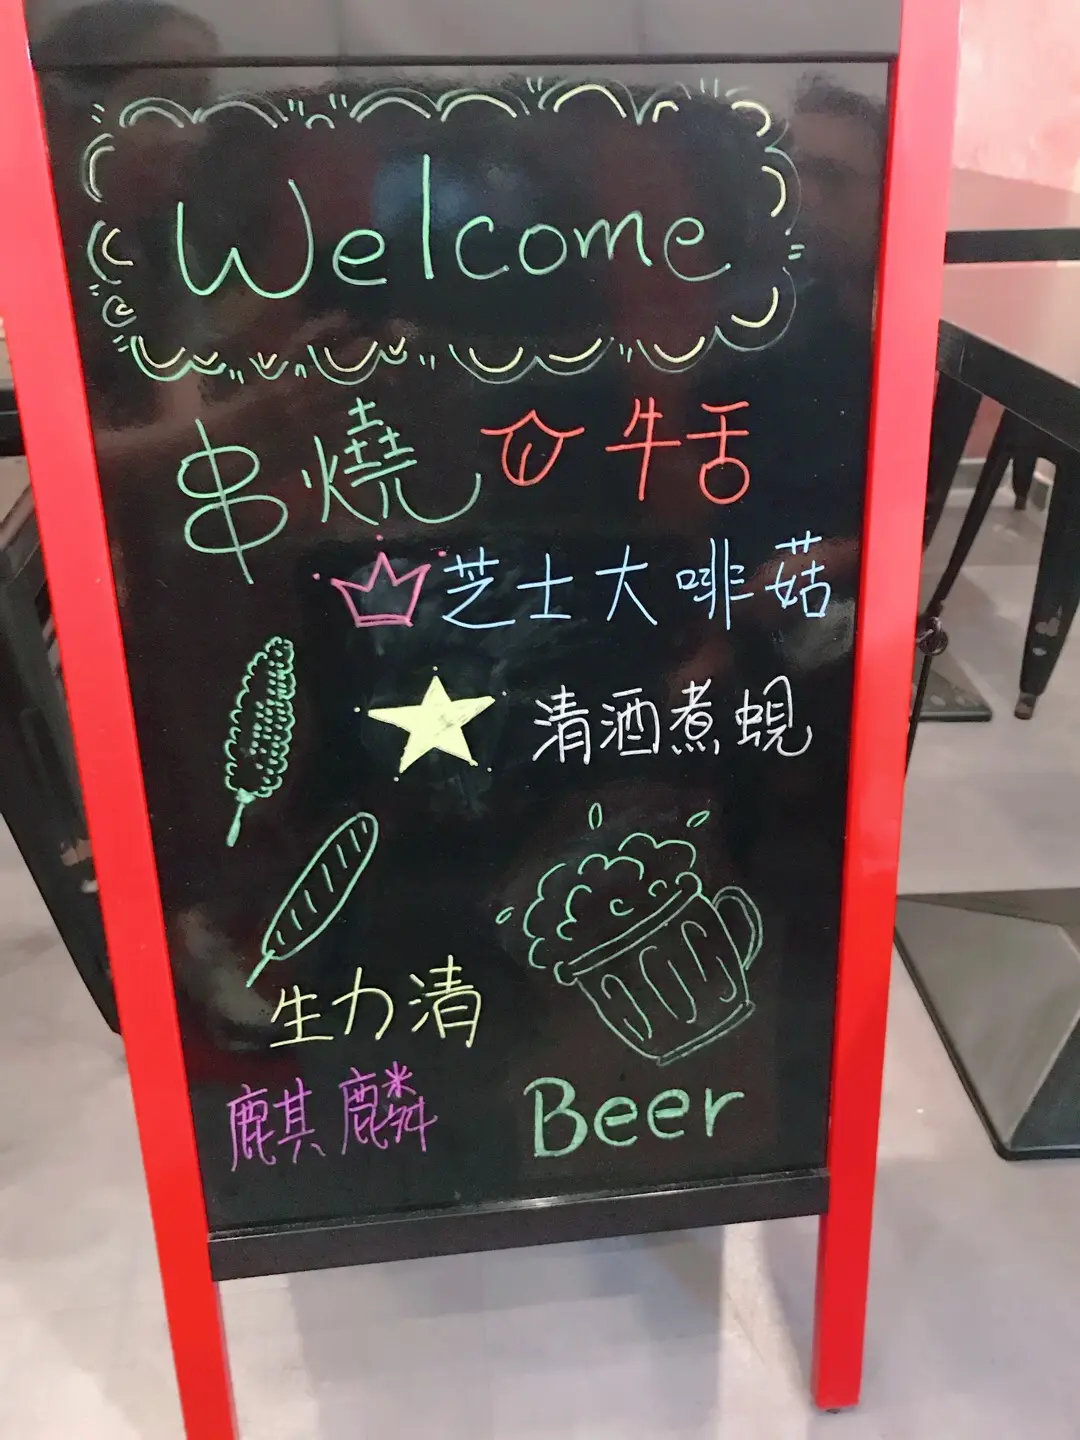 Welcome
串燒 牛舌
芝士大啡菇
清酒煮蜆
生力清
麒麟 Beer